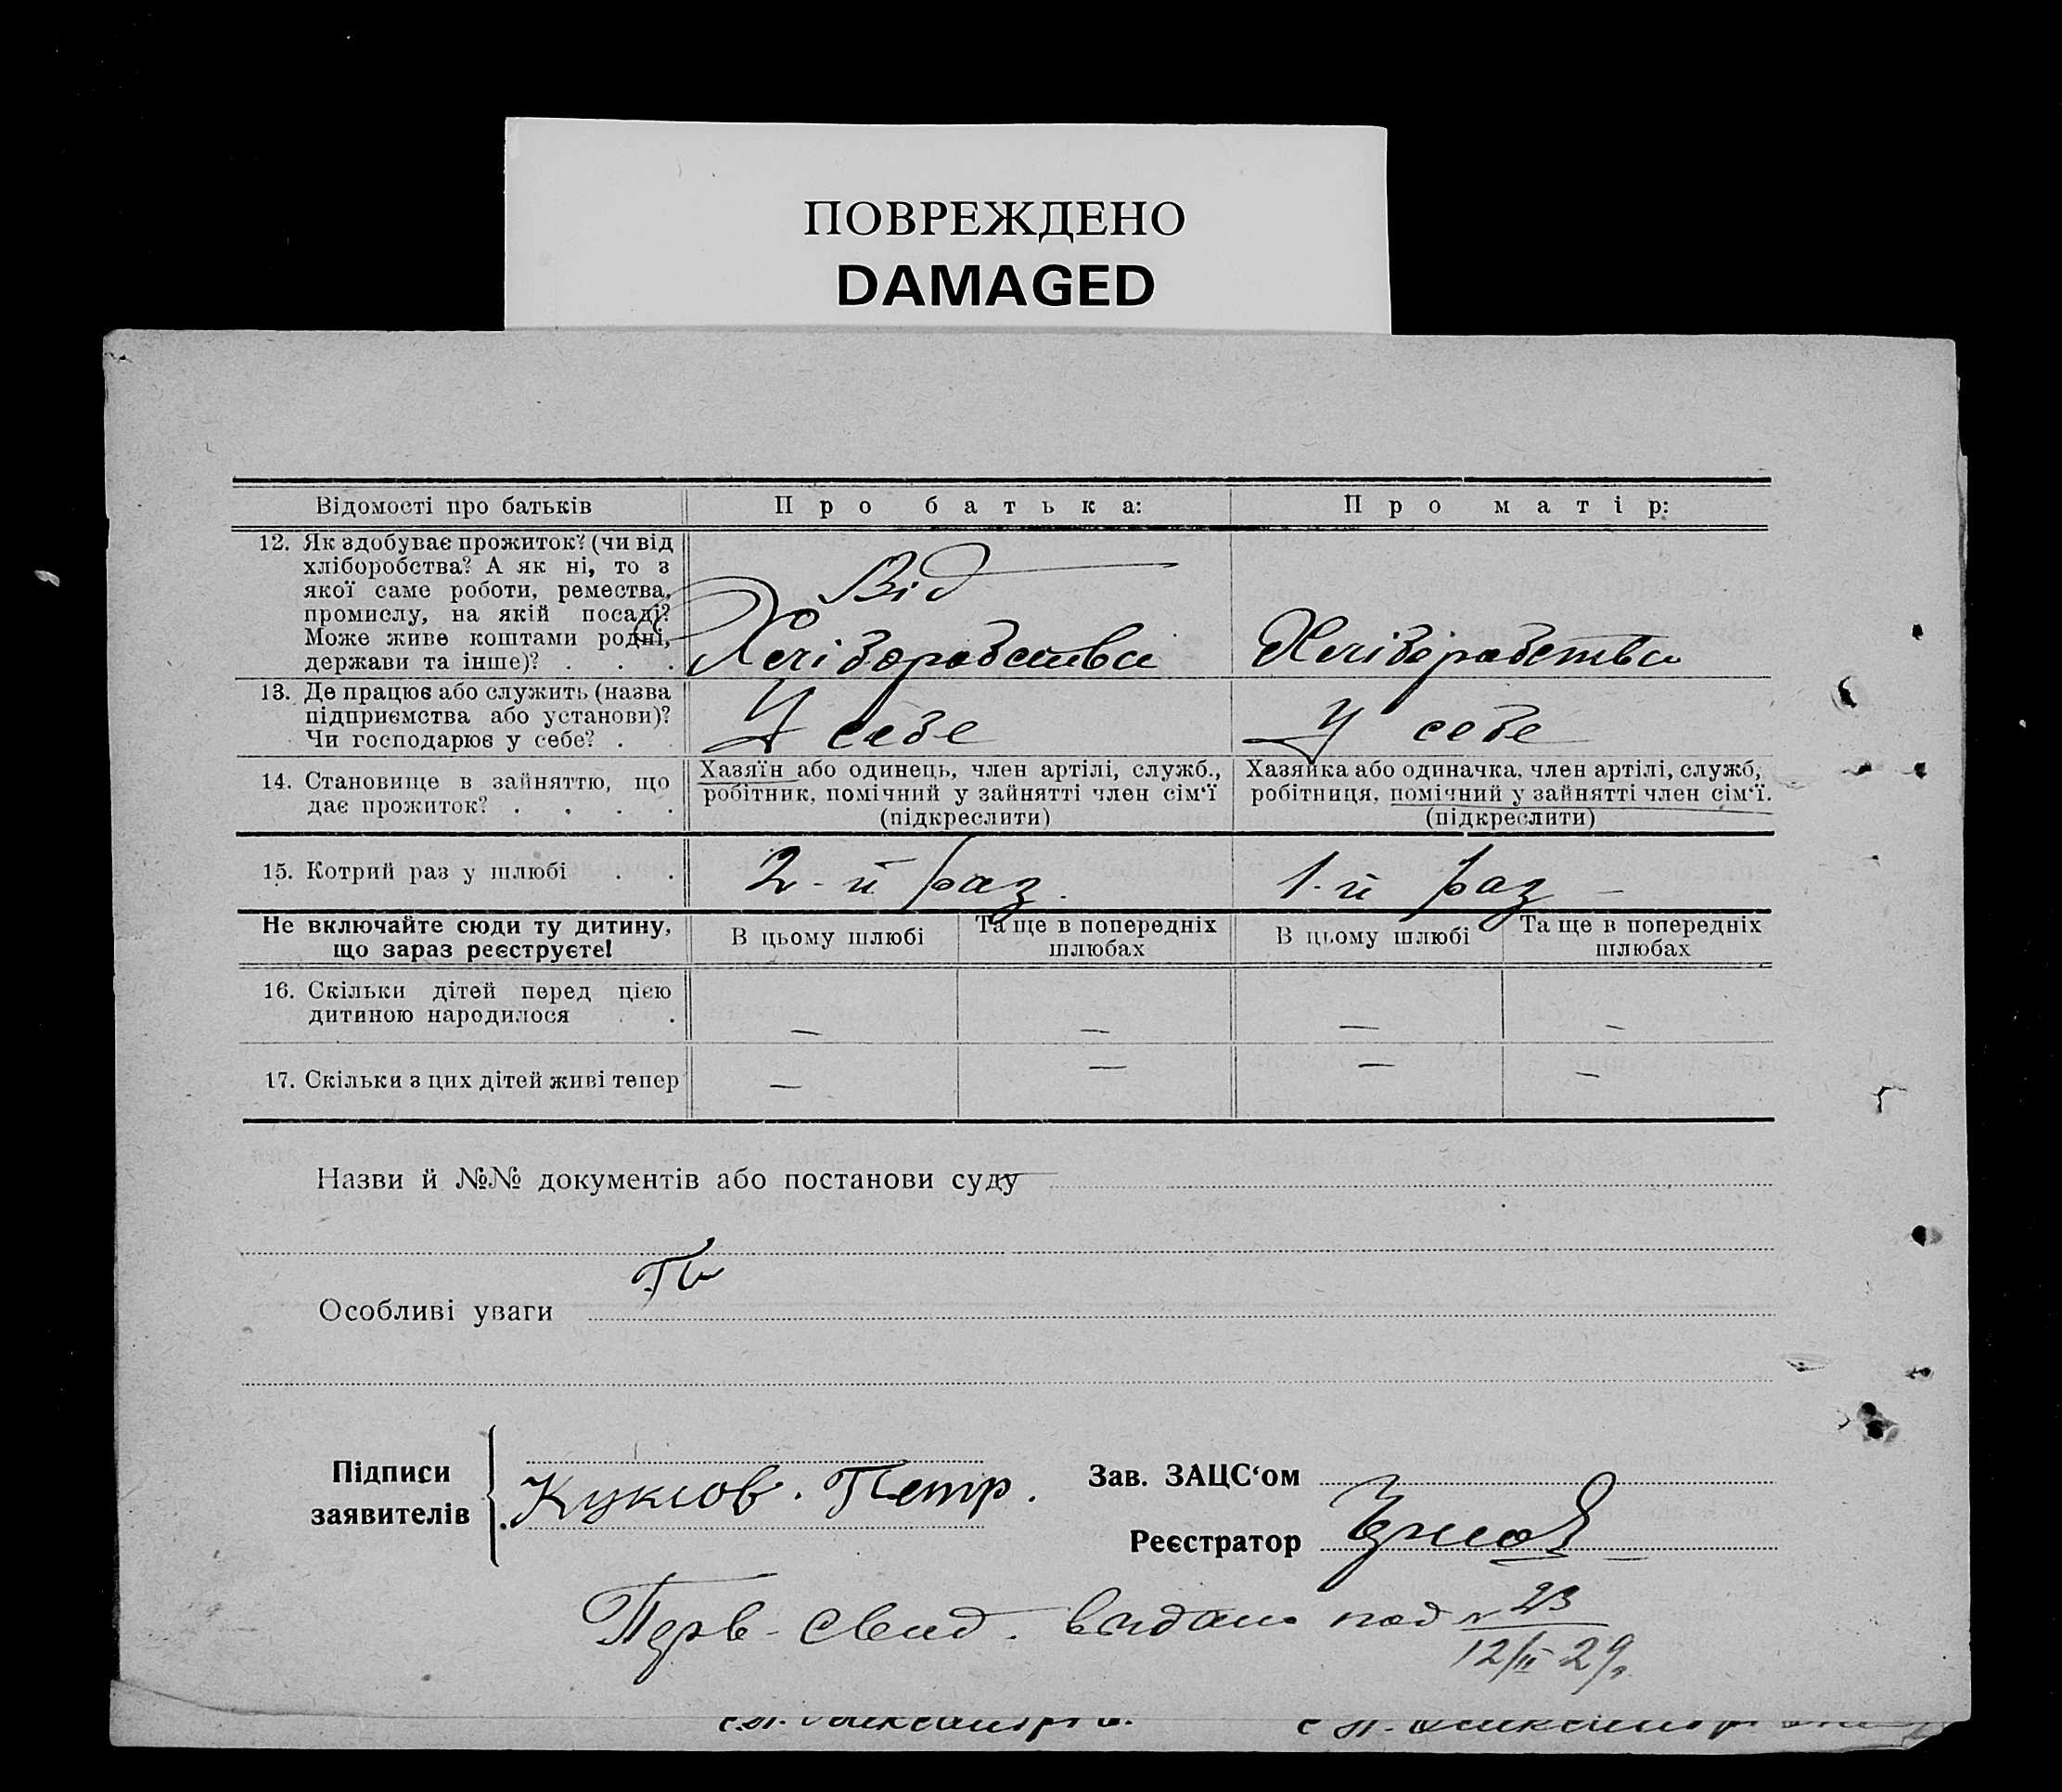 ПОВРЕЖДЕНО
DAMAGED
Відомості про батьків
Про батька:
Про матір:
12. Як здобуває прожиток? (чи від
хліборобства? А як ні, то з
якої саме роботи, ремества,
промислу, на якій посаді?
Може живе коштами родні,
держави та інше)? . . .
Від
Хліборобства
Хліборобства
13. Де працює або служить (назва
підприємства або установи)?
Чи господарює у себе? .
У себе
У себе
14. Становище в зайняттю, що
дає прожиток? . . . .
Хазяїн або одинець, член артілі, служб.,
робітник, помічний у зайнятті член сім‘ї
(підкреслити)
Хазяйка або одиначка, член артілі, служб,
робітниця, помічний у зайнятті член сім‘ї.
(підкреслити)
15. Котрий раз у шлюбі . .
2-й раз.
1-й раз –
Не включайте сюди ту дитину,
що зараз реєструєте!
В цьому шлюбі
Та ще в попередніх
шлюбах
В цьому шлюбі
Та ще в попередніх
шлюбах
16. Скільки дітей перед цією
дитиною народилося . .
— — — —
17. Скільки з цих дітей живі тепер
— — — —
Назви й №№ документів або постанови суду
Особливі уваги
Підписи
заявителів
Куклов. Петр.
Зав. ЗАЦС‘ом
Реєстратор
Перв. свид. выдано под № 23
12/II 29г.